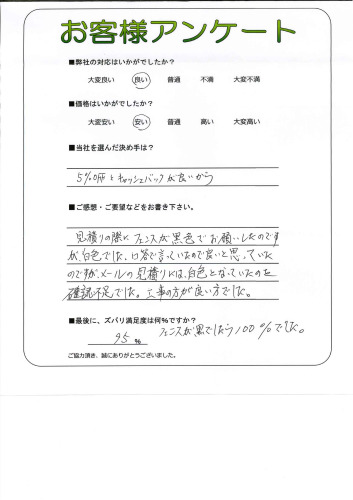 お客様アンケート
■弊社の対応はいかがでしたか?
大変良い 良い 普通 不満 大変不満
■価格はいかがでしたか?
大変安い 安い 普通 高い 大変高い
■当社を選んだ決め手は?
5%OFFとキャッシュバックが良いから
■ご感想・ご要望などをお書き下さい。
見積りの際にフェンスが黒色でお願いしたのです
が、白色でした、口答で言っていたので良いと思っていた
のですが、メールの見積りには、白色となっていたのを
確認不足でした。工事の方が良い方でした。
■最後に、ズバリ満足度は何%ですか?
95 % フェンスが黒でしたら100%でした。
ご協力頂き、誠にありがとうございました。